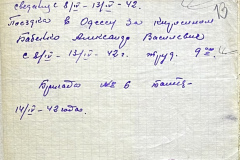 13
сведение 8/IV - 13/IV - 42.
Поездка в Одессу за кирпичом
Бабенко Александр Васильевич
с 8/IV - 13/IV - 42 г. труд. 9
Бригада № 6
14/IV - 42 года.